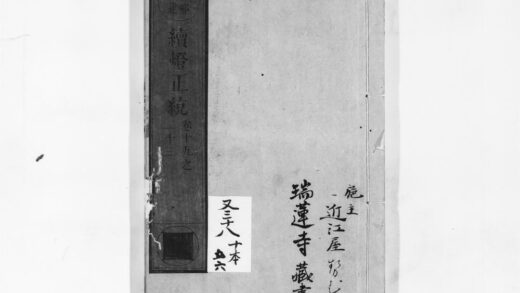 施主
近江屋
瑞蓮寺藏書
續燈正統
卷十五之
十二
又三八
十本
五六